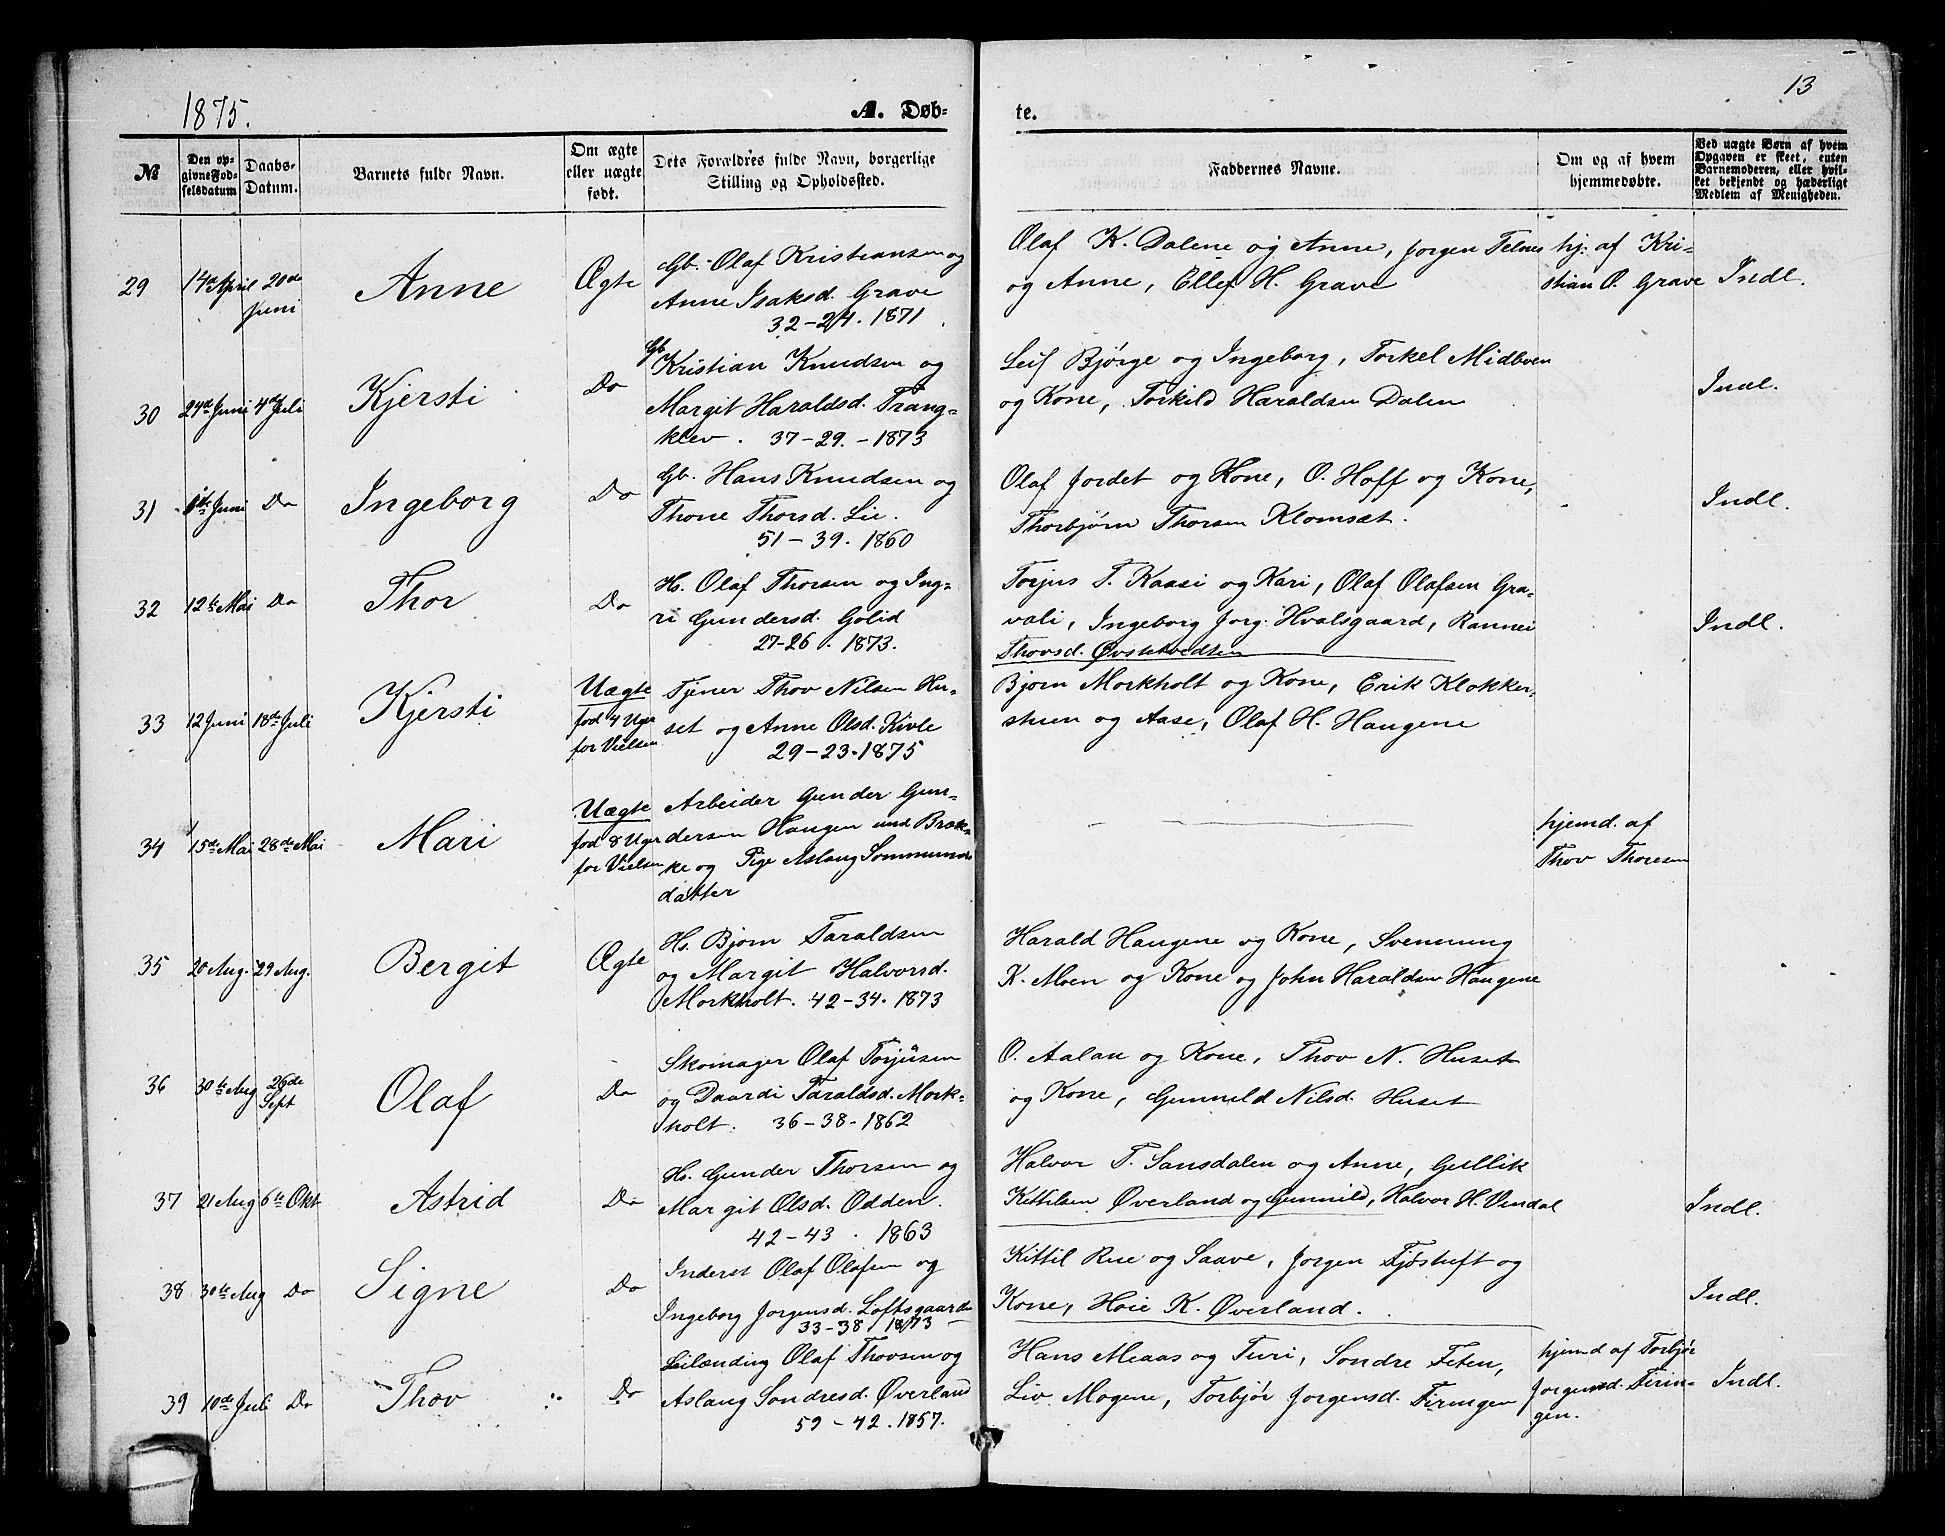 1875.
A. Døb-
te.
13
№
Den op-
givne Fød-
selsdatum
Daabs-
Datum.
Barnets fulde Navn.
Om ægte
eller uægte
født.
Dets Forældres fulde Navn, borgerlige
Stilling og Opholdssted.
Faddernes Navne.
Om og af hvem
hjemmedøbte.
Ved uægte Børn af hvem
Opgaven er skeet, enten
Barnemoderen, eller hvil-
ket bekjendt og hæderligt
Medlem af Menigheden.
29
14de April
20de
Juni
Anne
Ægte
Gb. Olaf Kristiansen og
Anne Isaksd. Grave
32-24. 1871
Olaf K. Dalene og Anne, Jorgen Telnes
og Anne, Ellef H. Grave
hj: af Kri-
stian O. Grave
Indl.
30
24de Juni
4de Juli
Kjersti
Do
Gb.
Kristian Knudsen og
Margit Haraldsd. Trang-
klev. 37-29.-1873
Leif Bjørge og Ingeborg, Torkel Midboen
og Kone, Torkild Haraldsen Dalen
Indl.
31
1ste Juni
Do
Ingeborg
Do
Gb. Hans Knudsen og
Thone Thorsd. Lie.
51-39. 1860
Olaf Jordet og Kone, O. Hoff og Kone,
Thorbjørn Thorsen Klomsæt.
Indl.
32
12te Mai
Do
Thor
Do
Hs. Olaf Thorsen og Ing-
ri Gundersd. Golid
27-26. 1873.
Torjus T. Kaasi og Kari, Olaf Olafsen Gra-
vali, Ingeborg Jorg. Hvalsgaard, Rannei
Thovsd. Øvstetvedten
Indl.
33
12 Juni
18de Juli
Kjersti
Uægte
fød 4 Uger
for Vielsen
Tjener Thov Nilsen Hu-
set og Anne Olsd. Kivle
29-23-1875
Bjorn Morkholt og Kone, Erik Klokker-
stuen og Aase, Olaf H. Haugene
34
15de Mai
28de Mai
Mari
Uægte
fød 8 Uger
for Vielsen
Arbeider Gunder Gun-
dersen Haugen und Bræk-
ke og Pige Aslaug Sommunds
datter
hjemd. af
Thov Thoresen
35
20 Aug.
29 Aug.
Bergit
Ægte
Hs. Bjorn Taraldsen
og Margit Halvorsd.
Morkholt. 42-34. 1873
Harald Haugene og Kone, Svennung
K. Moen og Kone og John Haraldsen Haugene
36
30te Aug
26de
Sept
Olaf
Do
Skomager Olaf Torjusen
og Daardi Taraldsd. Mork-
holt. 36-38-1862
O. Aalan og Kone, Thov N. Huset
og Kone, Gunnild Nilsd. Huset
37
21 Aug
6te Okt
Astrid
Do
Hs. Gunder Thorsen og
Margit Olsd. Odden.
42-43. 1863
Halvor T. Sansdalen og Anne, Gullik
Kittilsen Øverland og Gunnild, Halvor H. Vindal
Indl.
38
30te Aug
Do
Signe
Do
Inderst Olaf Olafsen og
Ingeborg Jorgensd. Loftsgaarden
33-38 1873
Kittil Rue og Saave, Jorgen Tjøstuft og
Kone, Hoie K. Øverland.
Indl.
39
10de Juli
Do
Thov
Do
Leilending Olaf Thovsen og
Aslaug Sondresd. Øverland
59-42. 1857.
Hans Meaas og Turi, Sondre Feten,
Liv Mogene, Torbjør Jorgensd. Tiringen
hjemd af Torbjør
Jorgensd. Tirin-
gen.
Indl.